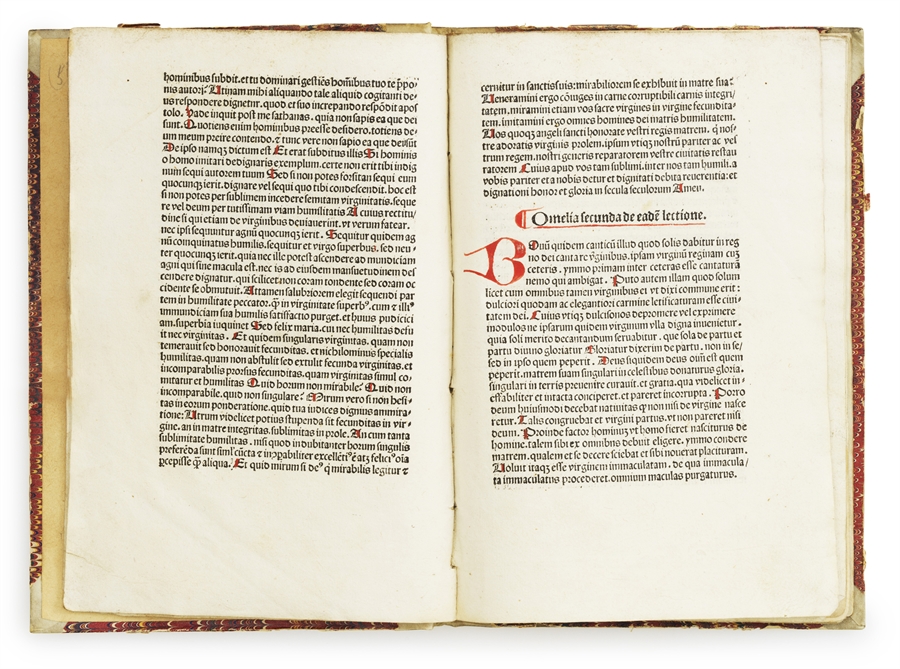 hominibus subdit. et tu dominari gestiẽs hoĩbus tuo te p̃po/
nis autori? Utinam mihi aliquando tale aliquid cogitanti de-
us respondere dignetur. quod et suo increpando respõdit apos
tolo. Vade inquit post me sathanas. quia non sapis ea que dei
sunt. Quotiens enim hominibus preesse desidero. totiens de-
um meum preire contendo. ⁊ tunc vere non sapio ea que dei sũt
De ipso namqꝫ dictum est Et erat subditus illis Si hominis
o homo imitari dedignaris exemplum. certe non erit tibi indig
num sequi autorem tuum Sed si non potes forsitan sequi eum
quocunqꝫ ierit. dignare vel sequi quo tibi condescendit. hoc est
si non potes per sublimem incedere semitam virginitatis. seque
re vel deum per tutissimam viam humilitatis A cuius rectitu/
dine si qui etiam de virginibus deviauerint. vt verum fatear.
nec ipsi sequuntur agnũ quocunqꝫ ierit. Sequitur quidem ag
nũ conquinatus humilis. sequitur et virgo superbus. sed neu-
ter quocunqꝫ ierit. quia nec ille potest ascendere ad mundiciam
agni qui sine macula est. nec is ad eiusdem mansuetudinem des
cendere dignatur. qui scilicet non coram tondente sed coram oc
cidente se obmutuit. Attamen salubriorem elegit sequendi par
tem in humilitate peccator. q̃ in virginitate superbꝰ. cum ⁊ illiꝰ
immundiciam sua humilis satisfactio purget. et huius pudicici
am. superbia inquinet Sed felix maria. cui nec humilitas defu
it nec virginitas. Et quidem singularis virginitas. quam non
temerauit sed honorauit fecunditas. et nichilominus specialis
humilitas. quam non abstulit sed extulit fecunda virginitas. et
incomparabilis prorsus fecunditas. quam virginitas simul co-
mitatur et humilitas Quid horum non mirabile? Quid non
incomparabile. quid non singulare? Mirum vero si non hesi-
tas in eorum ponderatione. quid tua iudices dignius ammira-
tione; Utrum videlicet potius stupenda sit fecunditas in vir-
gine. an in matre integritas. sublimitas in prole. An cum tanta
sublimitate humilitas. nisi quod indubitanter horum singulis
preferẽda sunt simĺ cũcta ⁊ incõpabiliter excellẽtiꝰ ẽ atqꝫ feliciꝰ oĩa
ꝑcepisse q̃ aliqua. Et quid mirum si deꝰ q̃ mirabilis legitur ⁊
cernitur in sanctis suis: mirabiliorem se exhibuit in matre sua?
Ueneramini ergo cõiuges in carne corruptibili carnis integri/
tatem. miramini etiam vos sacre virgines in virgine fecundita-
tem. imitamini ergo omnes homines dei matris humilitatem.
Uos quoqꝫ angeli sancti honorate vestri regis matrem. q̃ nos/
tre adoratis virginis prolem. ipsum vtiqꝫ nostrũ pariter ac ves
trum regem. nostri generis reparatorem vestre ciuitatis restau
ratorem Cuius apud vos tam sublimi. inter nos tam humili. a
vobis pariter et a nobis detur et dignitati debita reuerentia: et
dignationi honor et gloria in secula seculorum Amen.
Omelia secunda de eadẽ lectione.
Nouũ quidem canticũ illud quod solis dabitur in reg
no dei cantare ṽginibus. ipsam virginũ reginam cuꝫ
ceteris. ymmo primam inter ceteras esse cantaturã
nemo qui ambigat. Puto autem illam quod solum
licet cum omnibus tamen virginibus et vt dixi commune erit:
dulciori quodam ac elegantiori carmine letificaturam esse ciui-
tatem dei. Cuius vtiqꝫ dulcisonos depromere vel exprimere
modulos ne ipsarum quidem virginum vlla digna inuenietur.
quia soli merito decantandum seruabitur. que sola de partu et
partu diuino gloriatur Gloriatur dixerim de partu. non in se/
sed in ipso quem peperit. Deus siquidem deus enim est quem
peperit. matrem suam singulari in celestibus donaturus gloria.
singulari in terris preuenire curauit. et gratia. qua videlicet in-
effabiliter et intacta conciperet. et pareret incorrupta. Porro
deum huiusmodi decebat natiuitas qua non nisi de virgine nasce
retur. Talis congruebat et virgini partus. vt non pareret nisi
deum. Proinde factor hominuꝫ vt homo fieret nasciturus de
homine. talem sibi ex omnibus debuit eligere. ymmo condere
matrem. qualem et se decere sciebat et sibi nouerat placituram.
Uoluit itaqꝫ esse virginem immaculatam. de qua immacula/
ta immaculatus procederet. omnium maculas purgaturus.